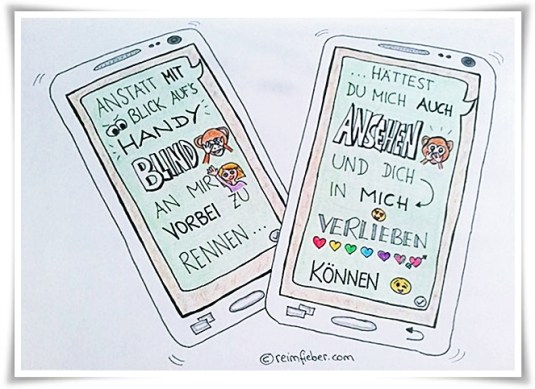 ANSTATT MIT
BLICK AUF'S
HANDY
BLIND
AN MIR
VORBEI ZU
RENNEN...
... HÄTTEST
DU MICH AUCH
ANSEHEN
UND DICH
IN MICH
VERLIEBEN
KÖNNEN
©reimfieber.com